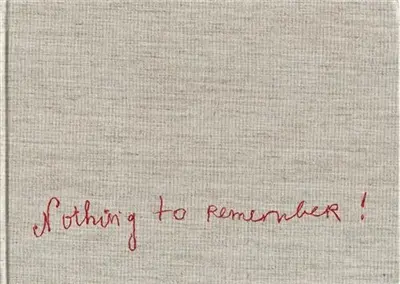 Nothing to remember !